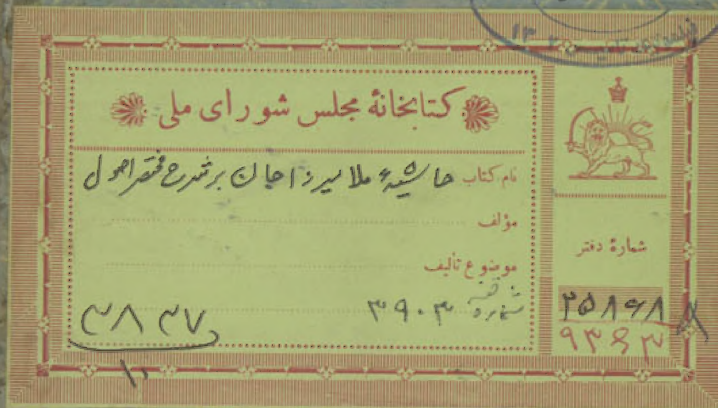 کتابخانهٔ مجلس شورای ملی
نام کتاب حاشیهٔ ملا میرزا جان بر شرح مختصر اصول
مؤلف
موضوع تألیف
شماره ۳۹۰۳
۳۸۳۷
۱۰
شمارهٔ دفتر
۲۵۸۶۸
۹۳۶۳